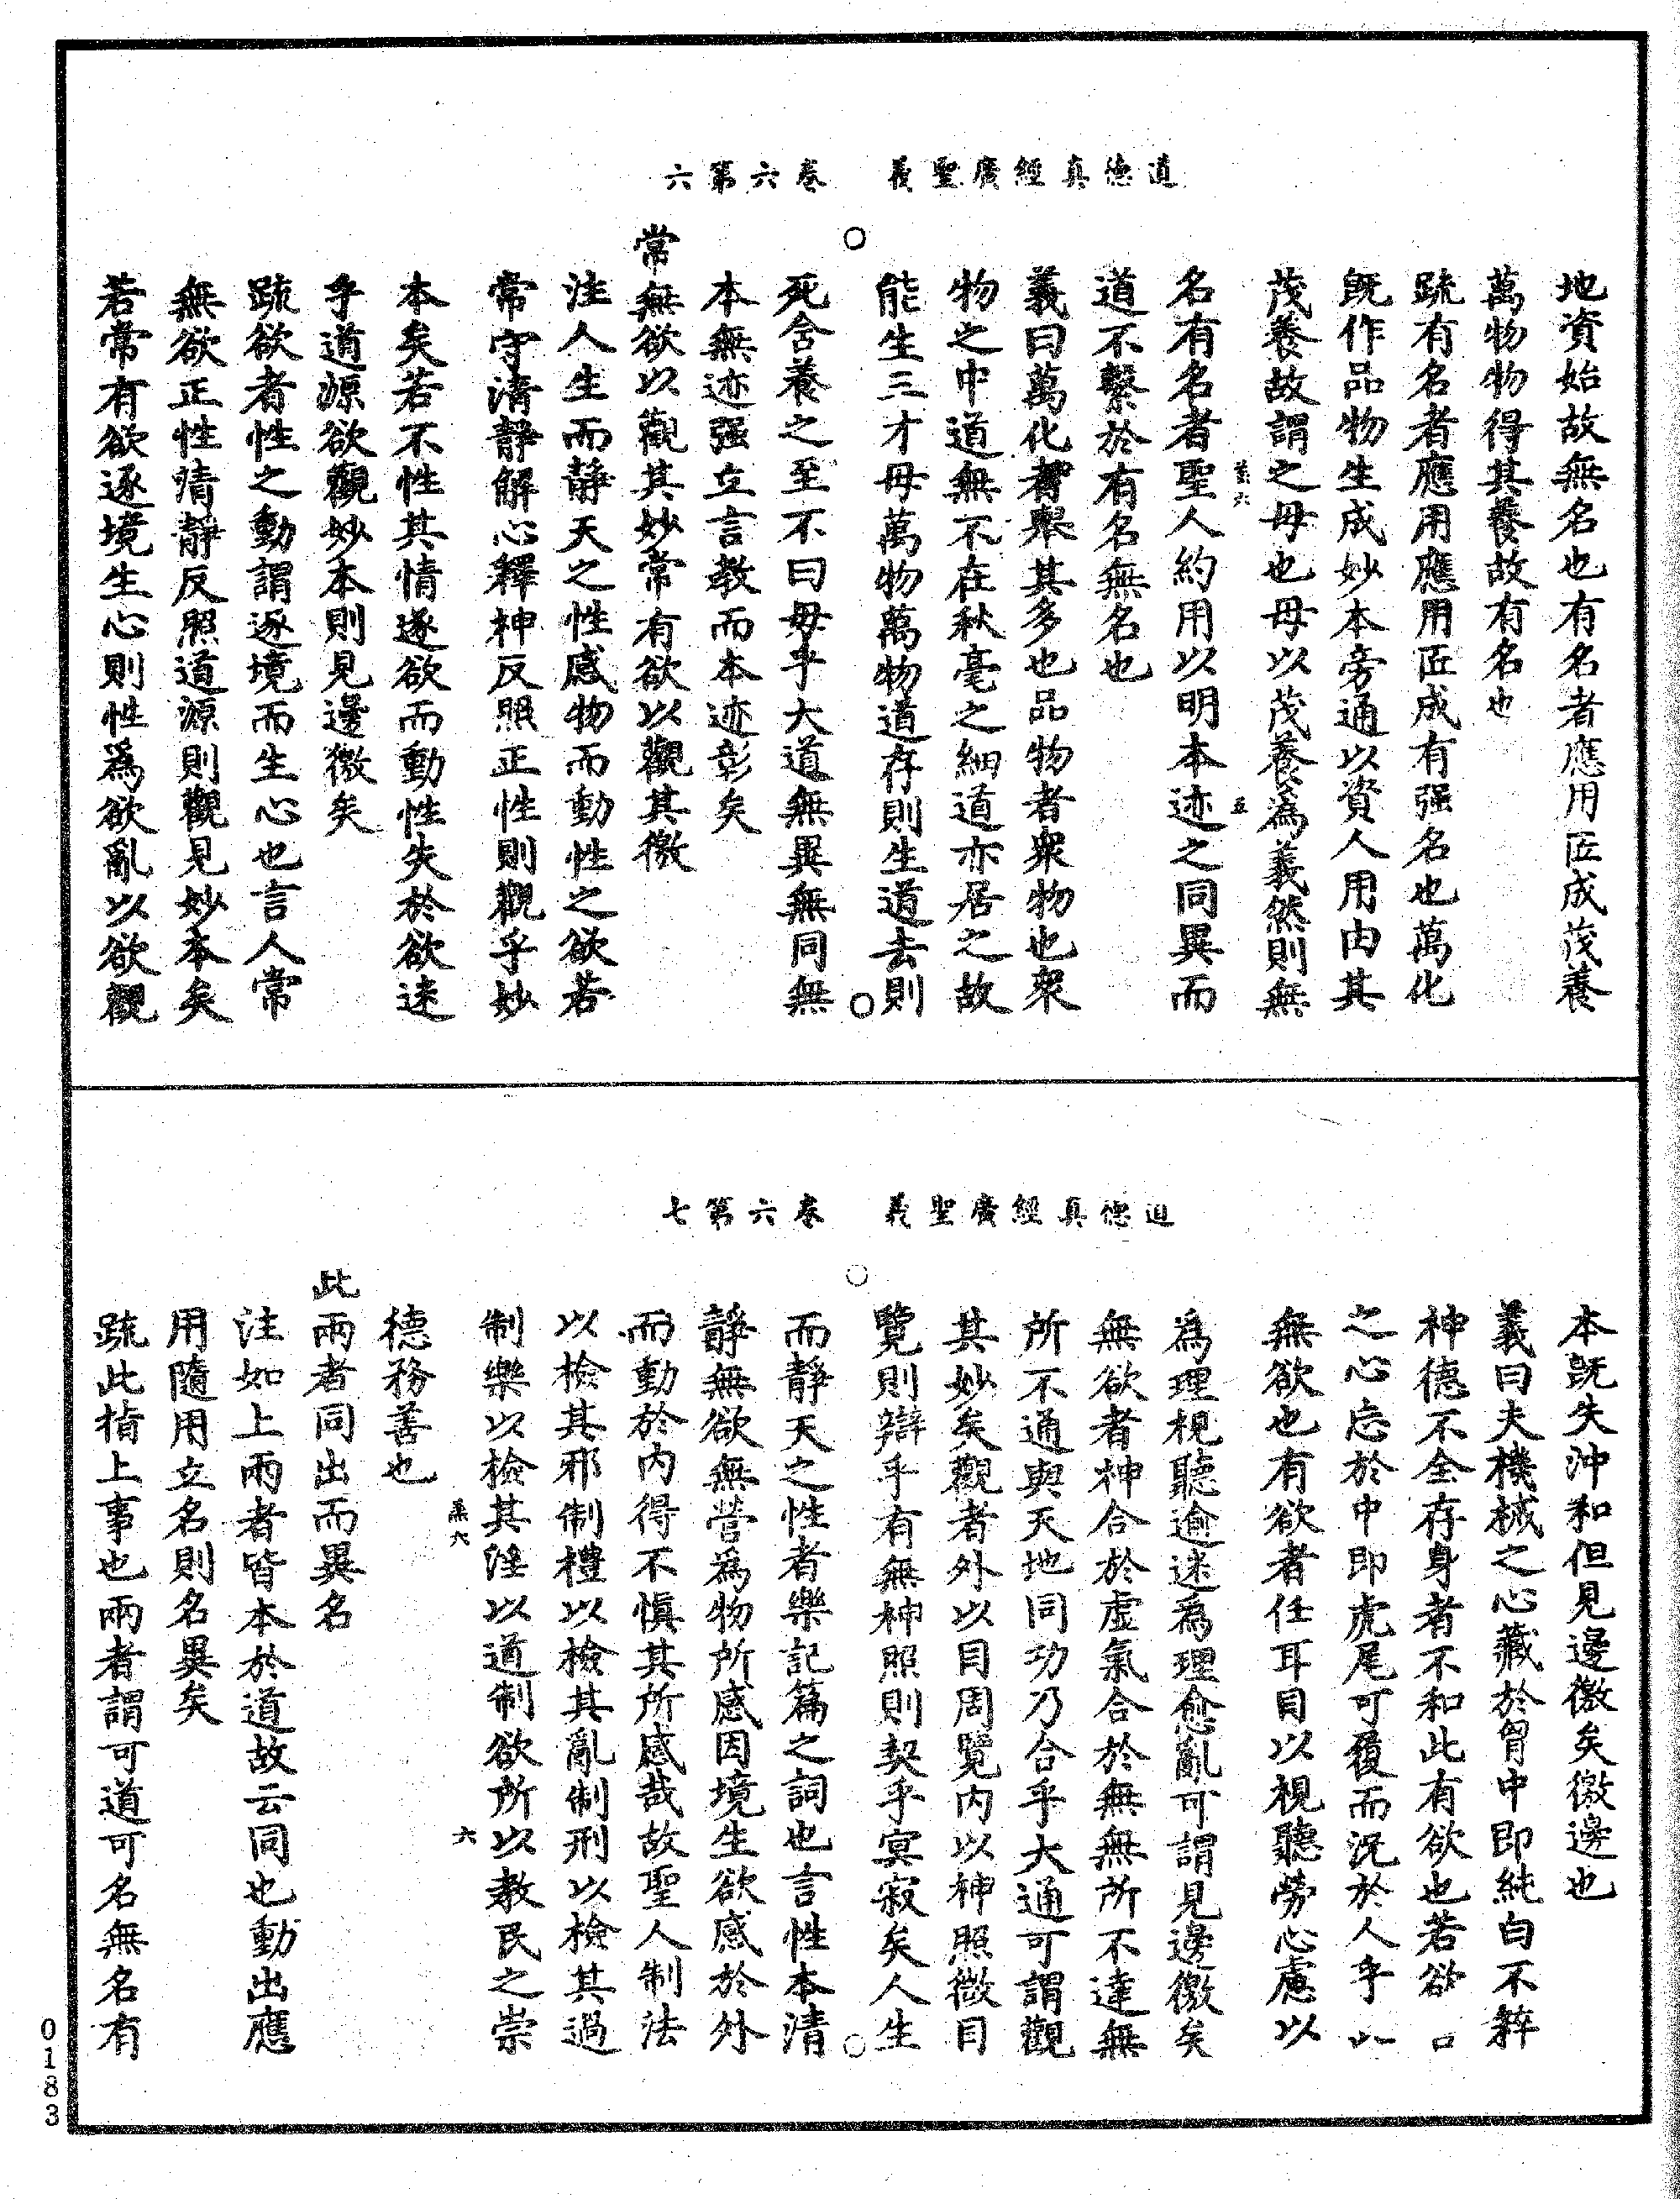 道德真經廣聖義　卷六第六
地資始故無名也有名者應用匠成茂養
萬物物得其養故有名也
䟽有名者應用應用匠成有强名也萬化
旣作品物生成妙本旁通以資人用由其
茂養故謂之母也母以茂養為義然則無
名有名者聖人約用以明本迹之同異而
道不繫於有名無名也
義曰萬化者舉其多也品物者衆物也衆
物之中道無不在秋毫之細道亦居之故
能生三才母萬物萬物道存則生道去則
死含養之至不曰母乎大道無異無同無
本無迹强立言教而本迹彰矣
常無欲以觀其妙常有欲以觀其徼
注人生而靜天之性感物而動性之欲若
常守清靜解心釋神反照正性則觀乎妙
本矣若不性其情逐欲而動性失於欲迷
乎道源欲觀妙本則見邊徼矣
䟽欲者性之動謂逐境而生心也言人常
無欲正性清靜反照道源則觀見妙本矣
若常有欲逐境生心則性爲欲亂以欲觀
道德真經廣聖義　卷六第七
本旣失沖和但見邊徼矣徼邊也
義曰夫機械之心藏於胷中即純白不粹
神德不全存身者不和此有欲也若欲
之心忘於中即虎尾可履而況於人乎
無欲也有欲者任耳目以視聽勞心慮以
爲理視聽逾迷爲理愈亂可謂見邊徼矣
無欲者神合於虛氣合於無無所不達無
所不通與天地同功乃合乎大通可謂觀
其妙矣觀者外以目周覽內以神照徼目
覽則辯乎有無神照則契乎冥寂矣人生
而靜天之性者樂記篇之詞也言性本清
靜無欲無營爲物所感因境生欲感於外
而動於內得不愼其所感哉故聖人制法
以檢其邪制禮以檢其亂制刑以檢其過
制樂以檢其淫以道制欲所以教民之崇
德務善也
此兩者同出而異名
注如上兩者皆本於道故云同也動出應
用隨用立名則名異矣
䟽此指上事也兩者謂可道可名無名有
0183